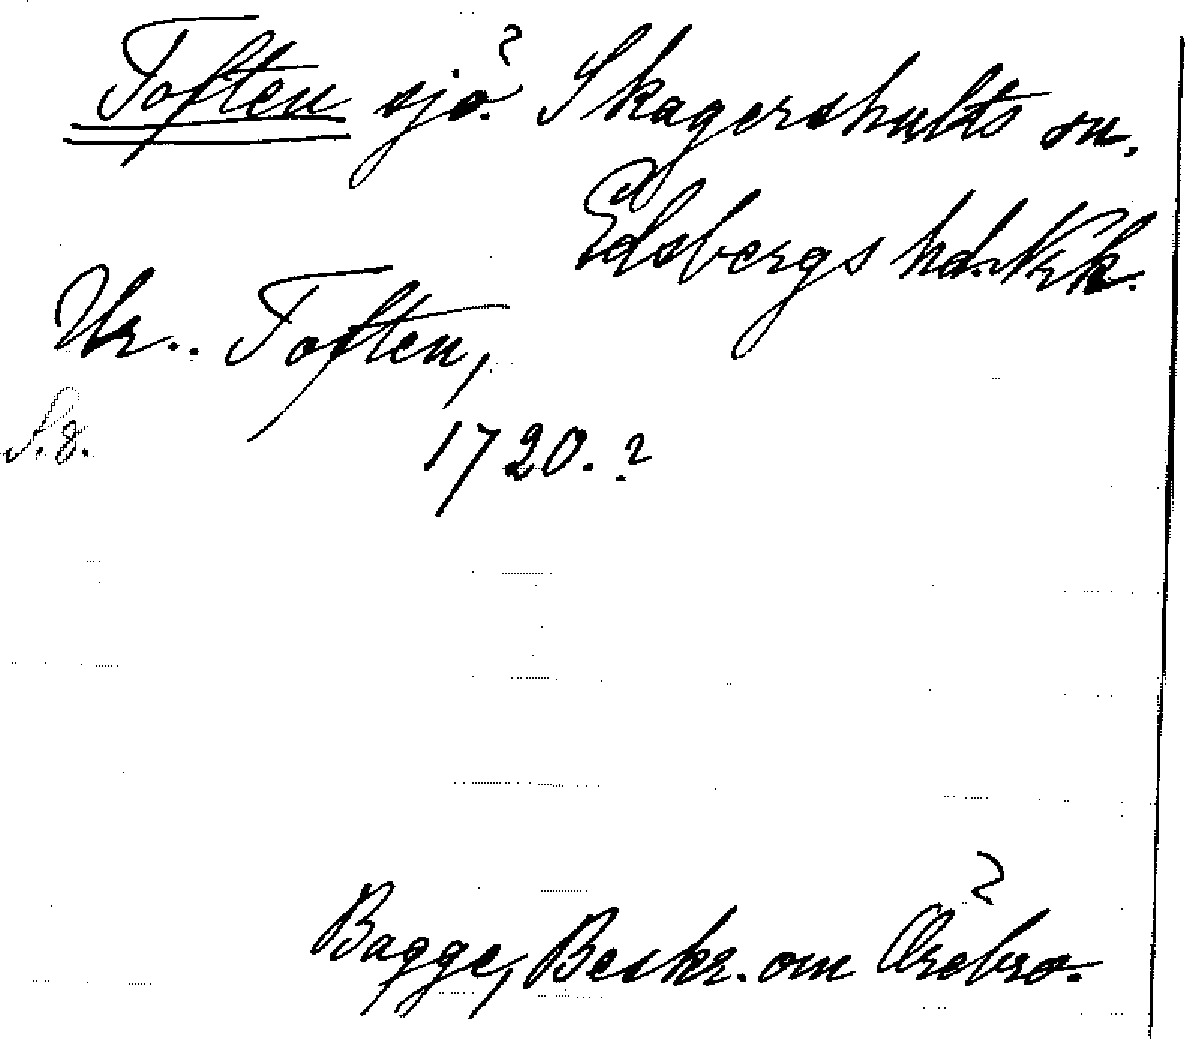 Toften sjö? Skagershults sn.
Edsbergs hd. Nrk.
Ur.. Toften,
S.d.
1720.?
Bagge, Beskr. om Örebro.
?